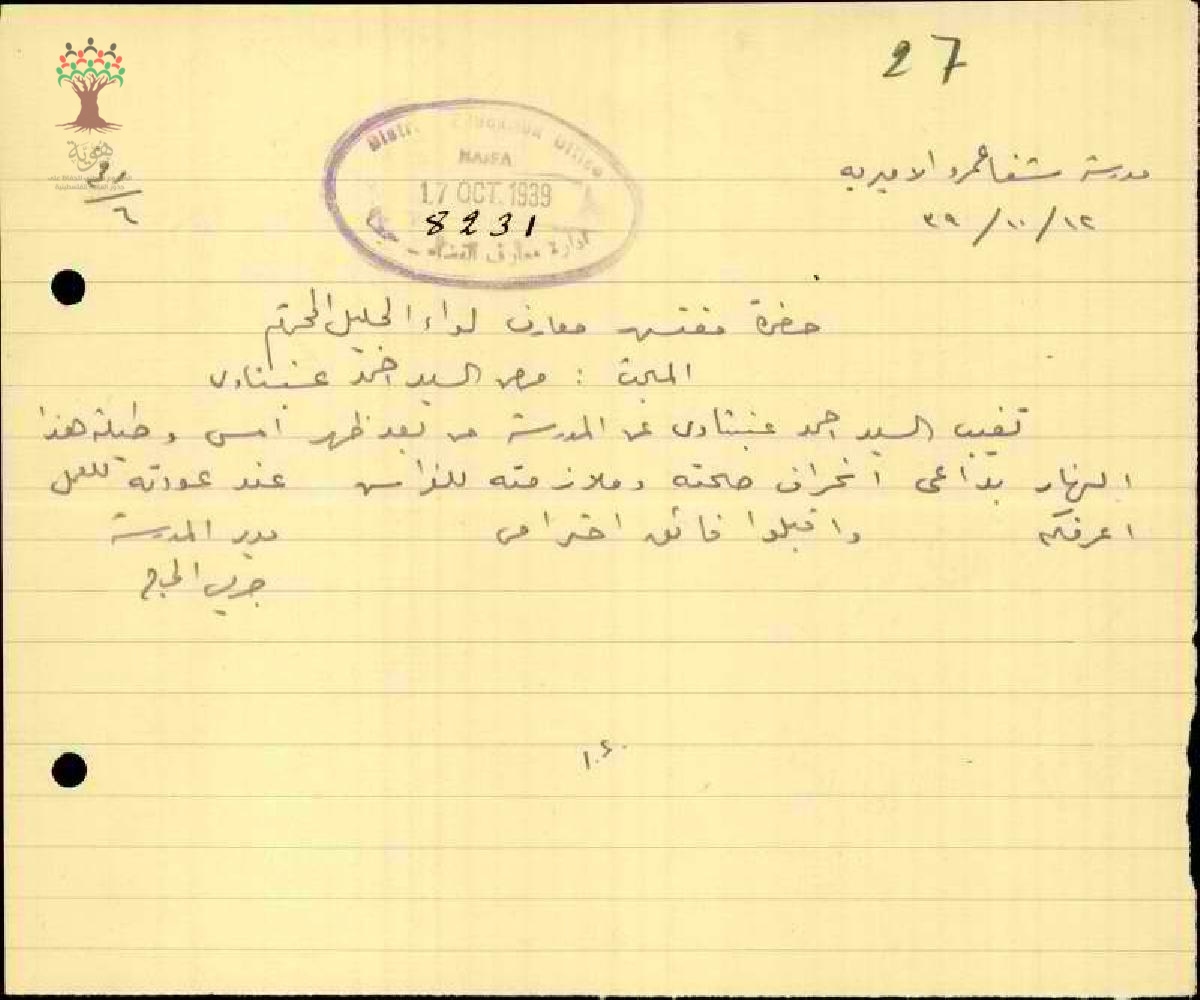 27
هوية
31
6
District Education Office
HAIFA
17 OCT. 1939
8231
ادارة معارف القضاء - حيفا
مدرسة شفاعمرو الاميرية
١٢/١٠/٣٩
حضرة مفتش معارف لواء الجليل المحترم
المبحث : مرض السيد احمد عنبتاوي
تغيب السيد احمد عنبتاوي عن المدرسة من بعد ظهر أمس وطيلة هذا
النهار بداعي انحراف صحته وملازمته للفراش عند عودته للعمل
اعرفكم واقبلوا فائق احترامي
مدير المدرسة